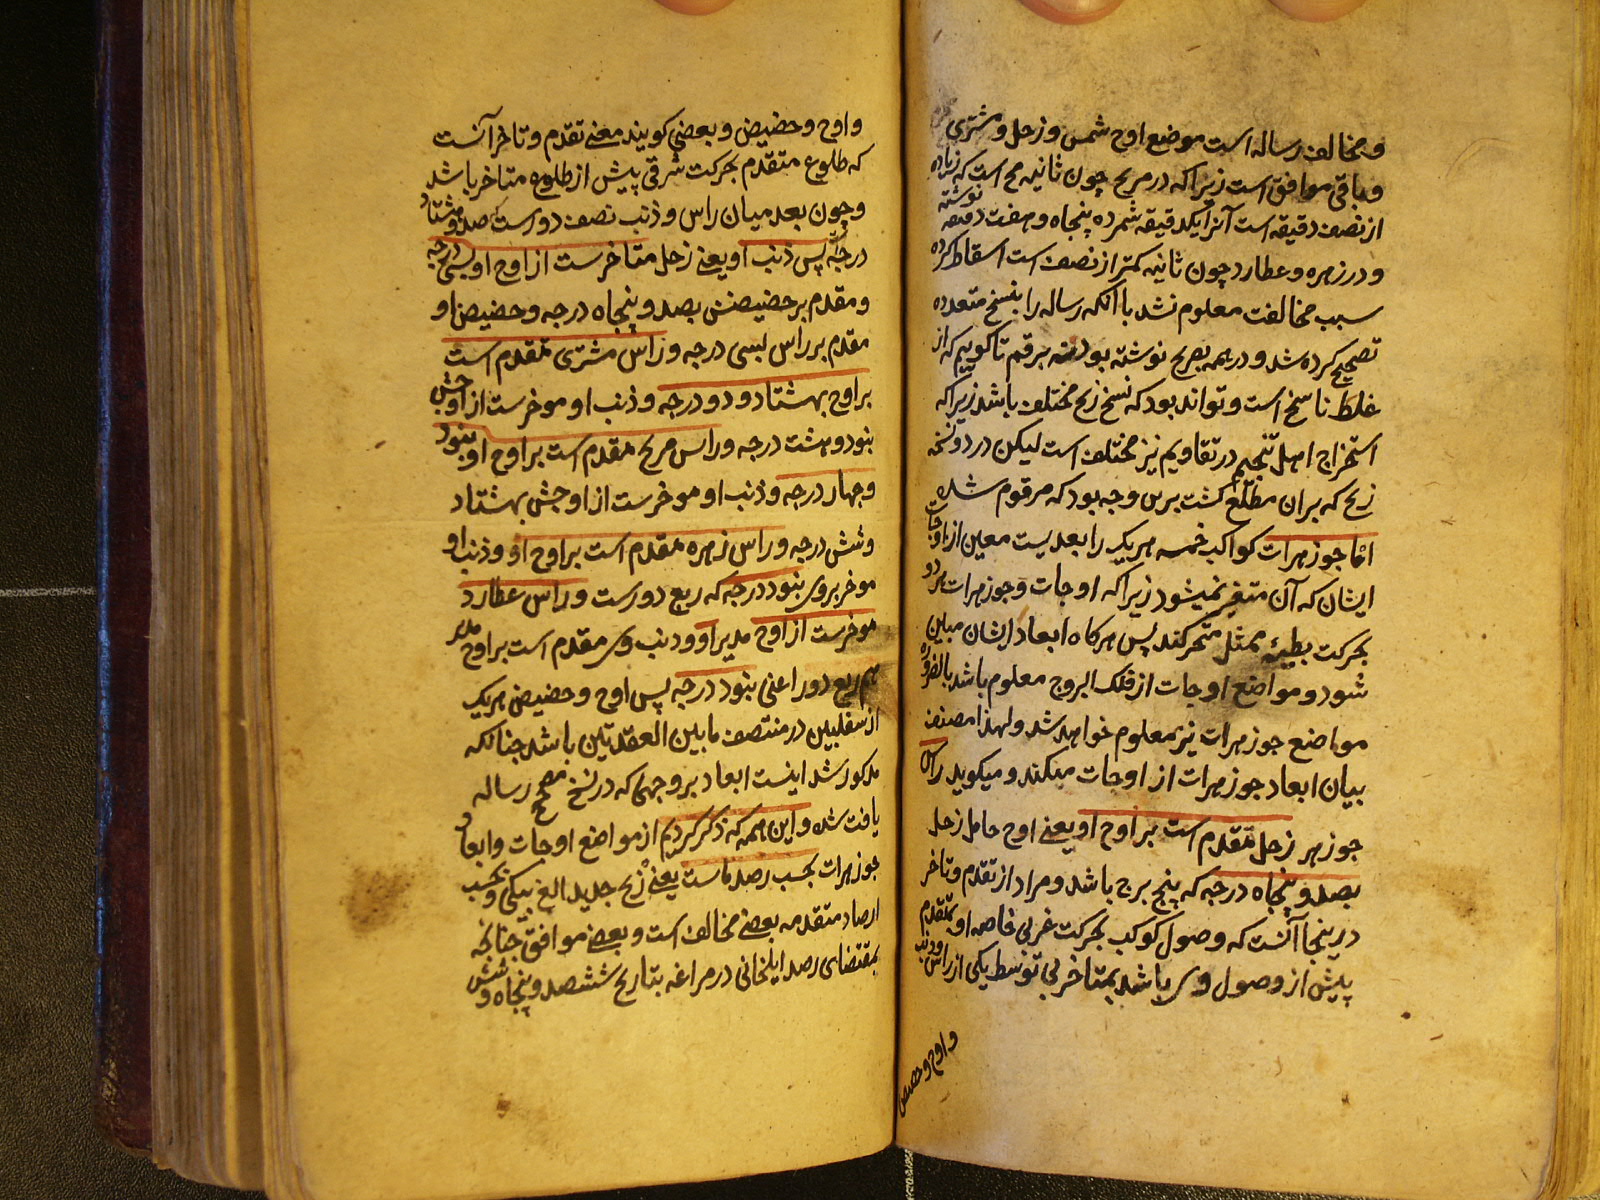 و مخالف رساله است موضع اوج شمس و زحل و مشتری
و باقی موافق است زیرا که در مریخ چون ثانیه مح است که زیاده
از نصف دقیقه است آنرا یکدقیقه شمرده پنجاه و هفت دقیقه نوشته
و در زهره و عطارد چون ثانیه کمتر از نصف است اسقاط کرده
سبب مخالفت معلوم نشد با آنکه رساله را بنسخ متعدده
تصحیح کرده شد و در همه بصریح نوشته بود نه برقم تا کوییم که از
غلط ناسخ است و تواند بود که نسخ زیج مختلف باشد زیرا که
استخراج اهل تنجیم در تقاویم نیز مختلف است لیکن در دو نسخه
زیج که بران مطلع کشت برین وجه بود که مرقوم شده
اما جوزهرات کواکب خمسه هریک را بعدیست معین از اوجات
ایشان که آن متغیر نمیشود زیرا که اوجات و جوزهرات هر دو
بحرکت بطیئه ممثل متحرکند پس هرکاه ابعاد ایشان مباین
شود و مواضع اوجات از فلک البروج معلوم باشد بالضروره
مواضع جوزهرات نیز معلوم خواهد شد و لهذا مصنف
بیان ابعاد جوزهرات از اوجات میکند و میکوید راس
جوزهر زحل مقدم است بر اوج او یعنی اوج حامل زحل
بصد و پنجاه درجه که پنج برج باشد و مراد از تقدم و تاخر
درینجا آنست که وصول کوکب بحرکت غربی خاصه او بمتقدم
پیش از وصول وی باشد بمتاخر بی توسط یکی از راس و ذنب
و اوج و حضیض
و اوج و حضیض و بعضی کویند معنی تقدم و تاخر آنست
که طلوع متقدم بحرکت شرقی پیش از طلوع متاخر باشد
و چون بعد میان راس و ذنب نصف دورست که صد و هشتاد
درجه پس ذنب او یعنی زحل متاخرست از اوج او بسی درجه
و مقدم بر حضیضش بصد و پنجاه درجه و حضیض او
مقدم بر راس بسی درجه و راس مشتری مقدم است
بر اوج بهشتاد و دو درجه و ذنب او موخرست از اوجش
بنود و هشت درجه و راس مریخ مقدم است بر اوج او بنود
و چهار درجه و ذنب او موخرست از اوجش بهشتاد
و شش درجه و راس زهره مقدم است بر اوج او و ذنب او
موخر بر وی بنود درجه که ربع دورست و راس عطارد
موخرست از اوج مدیر او و ذنب وی مقدم است بر اوج مدیر
هم ربع دور اعنی بنود درجه پس اوج و حضیض هریک
از سفلیین در منتصف ما بین العقدتین باشد چنانکه
مذکور شد اینست ابعاد بر وجهی که در نسخ مصحح رساله
یافت شد و این همه که ذکر کردیم از مواضع اوجات و ابعاد
جوزهرات بحسب رصد ماست یعنی زیج جدید الغ بیکی و بحسب
ارصاد متقدمه بعضی مخالف است و بعضی موافق چنانچه
بمقتضای رصد ایلخانی در مراغه بتاریخ ششصد و پنجاه و شش